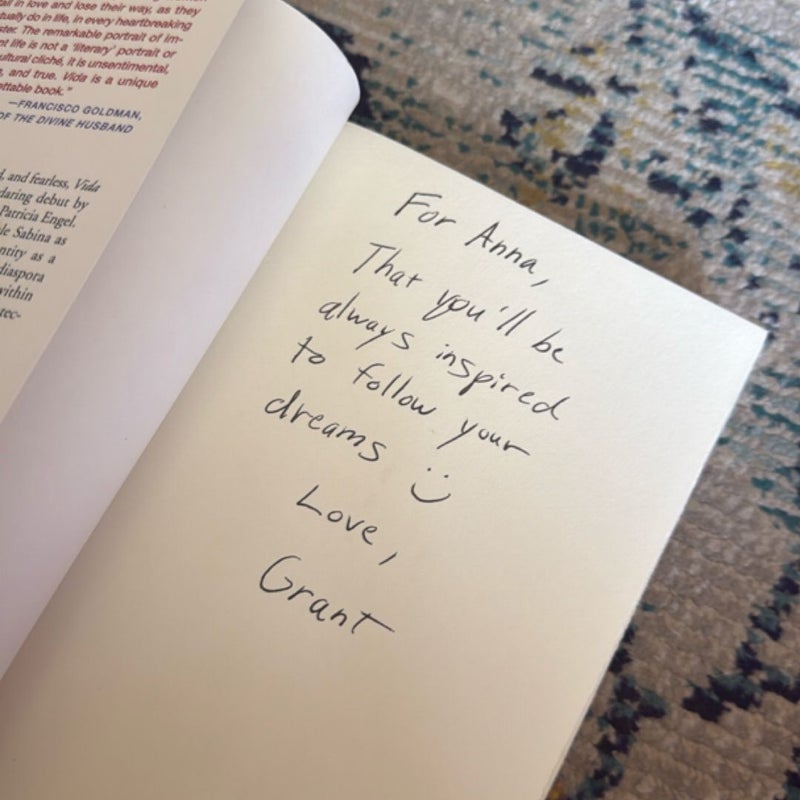 all in love and lose their way, as they
tually do in life, in every heartbreaking
ster. The remarkable portrait of im-
nt life is not a 'literary' portrait or
ultural cliché, it is unsentimental,
, and true. Vida is a unique
ettable book."
—FRANCISCO GOLDMAN,
OF THE DIVINE HUSBAND
, and fearless, Vida
daring debut by
Patricia Engel.
le Sabina as
ntity as a
diaspora
within
tec-
For Anna,
That you'll be
always inspired
to follow your
dreams :)
Love,
Grant